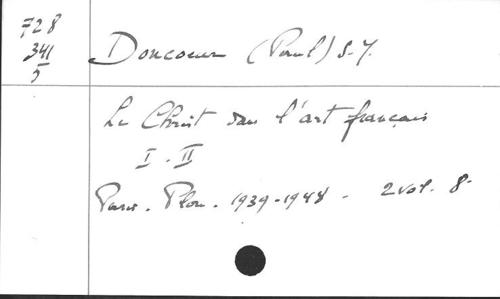 728
341
5
Doncoeur (Paul) S.J.
Le Christ dans l'art français
I. II
Paris. Plon. 1939-1948 - 2 vol. 8-